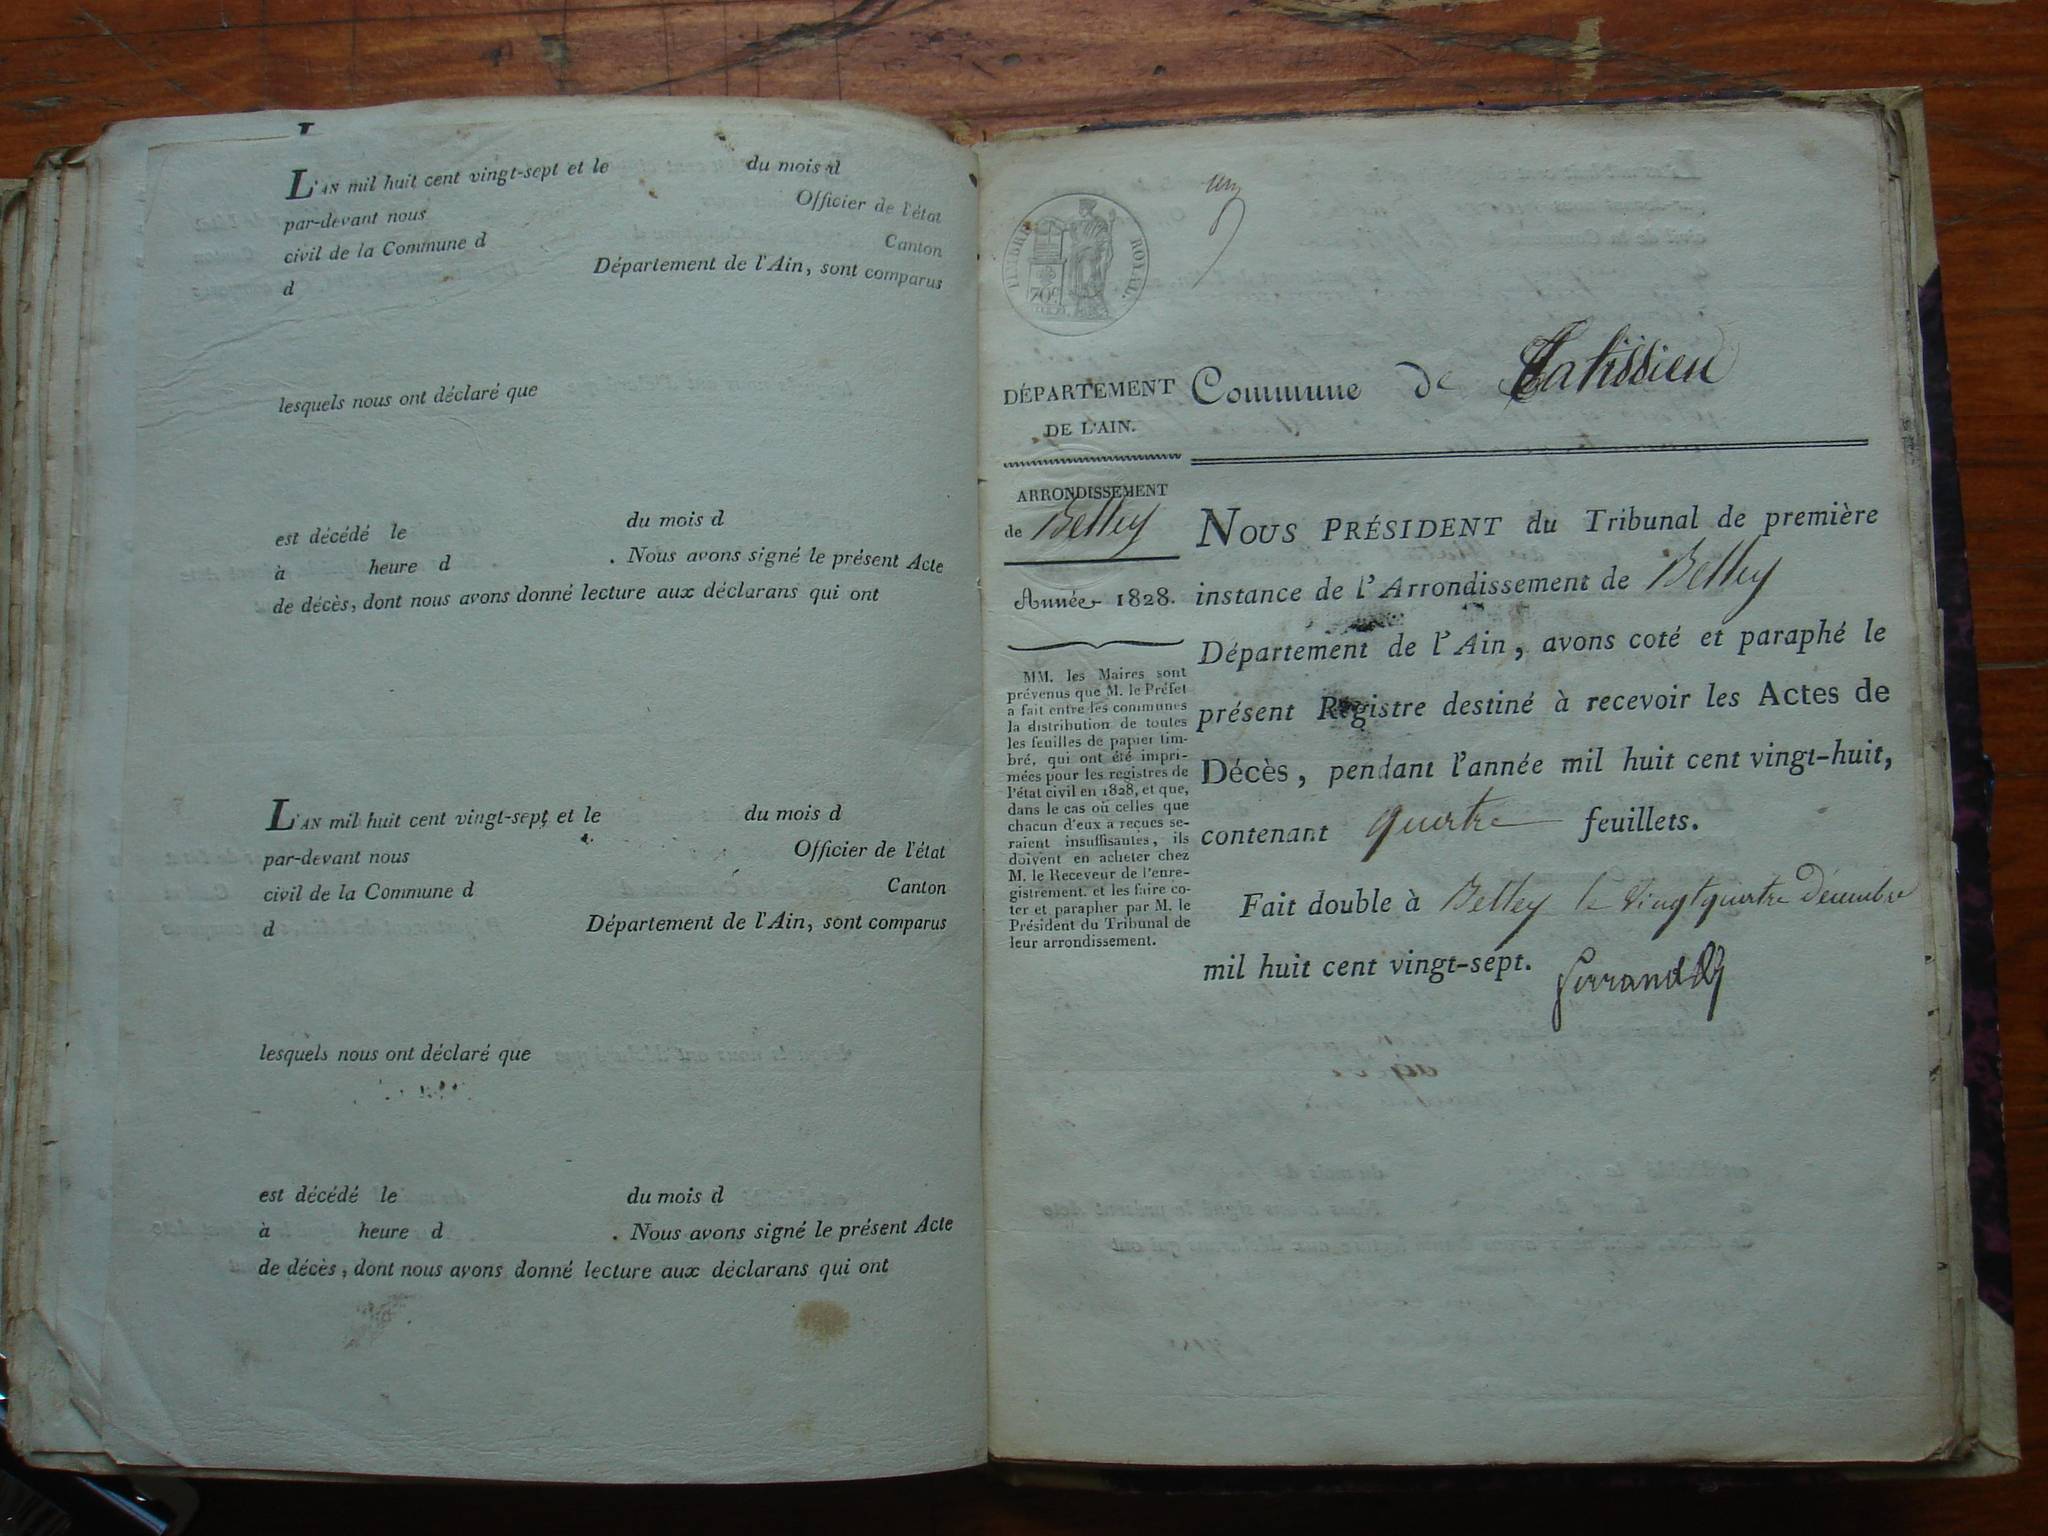 L'AN mil huit cent vingt-sept et le du mois d
par-devant nous Officier de l'état
civil de la Commune d Canton
d Département de l'Ain, sont comparus
lesquels nous ont déclaré que
est décédé le du mois d
à heure d . Nous avons signé le présent Acte
de décès, dont nous avons donné lecture aux déclarans qui ont
L'AN mil huit cent vingt-sept et le du mois d
par-devant nous Officier de l'état
civil de la Commune d Canton
d Département de l'Ain, sont comparus
lesquels nous ont déclaré que
est décédé le du mois d
à heure d . Nous avons signé le présent Acte
de décès, dont nous avons donné lecture aux déclarans qui ont
un
TIMBRE ROYAL.
70c
DÉPARTEMENT
DE L'AIN.
ARRONDISSEMENT
de Belley
Année 1828.
MM. les Maires sont
prévenus que M. le Préfet
a fait entre les communes
la distribution de toutes
les feuilles de papier tim-
bré, qui ont été impri-
mées pour les registres de
l'état civil en 1828, et que,
dans le cas où celles que
chacun d'eux a reçues se-
raient insuffisantes, ils
doivent en acheter chez
M. le Receveur de l'enre-
gistrement. et les faire co-
ter et parapher par M. le
Président du Tribunal de
leur arrondissement.
Commune de Talissieu
NOUS PRÉSIDENT du Tribunal de première
instance de l'Arrondissement de Belley
Département de l'Ain, avons coté et paraphé le
présent Registre destiné à recevoir les Actes de
Décès, pendant l'année mil huit cent vingt-huit,
contenant quatre feuillets.
Fait double à Belley le vingt quatre Décembre
mil huit cent vingt-sept.